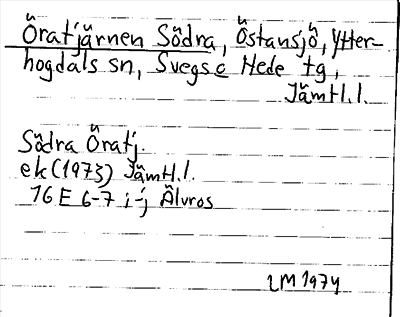 Öratjärnen Södra, Östansjö, Ytter-
hogdals sn, Svegs o Hede tg,
Jämtl.l.
Södra Öratj.
ek (1973) Jämtl.l.
16 E 6-7 i-j Älvros
LM 1974